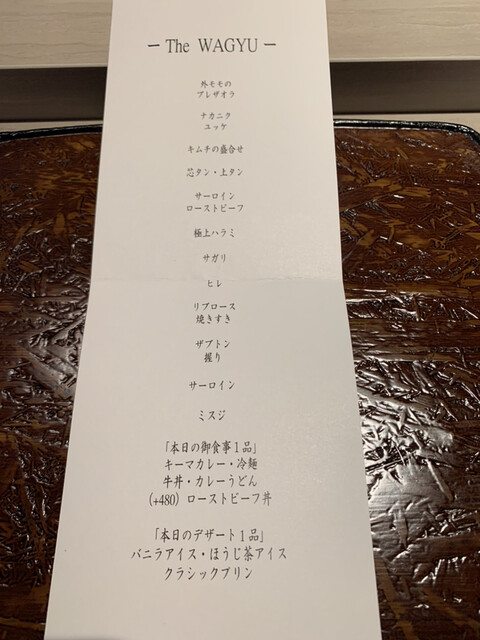 — The WAGYU —
外モモの
ブレザオラ
ナカニク
ユッケ
キムチの盛合せ
芯タン・上タン
サーロイン
ローストビーフ
極上ハラミ
サガリ
ヒレ
リブロース
焼きすき
ザブトン
握り
サーロイン
ミスジ
「本日の御食事１品」
キーマカレー・冷麺
牛丼・カレーうどん
(+480) ローストビーフ丼
「本日のデザート１品」
バニラアイス・ほうじ茶アイス
クラシックプリン